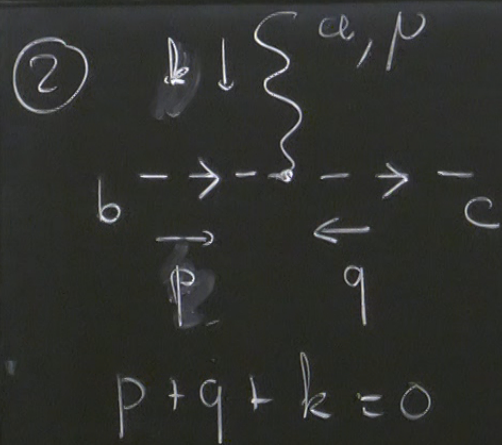 ② k α, μ
b c
p q
p + q + k = 0